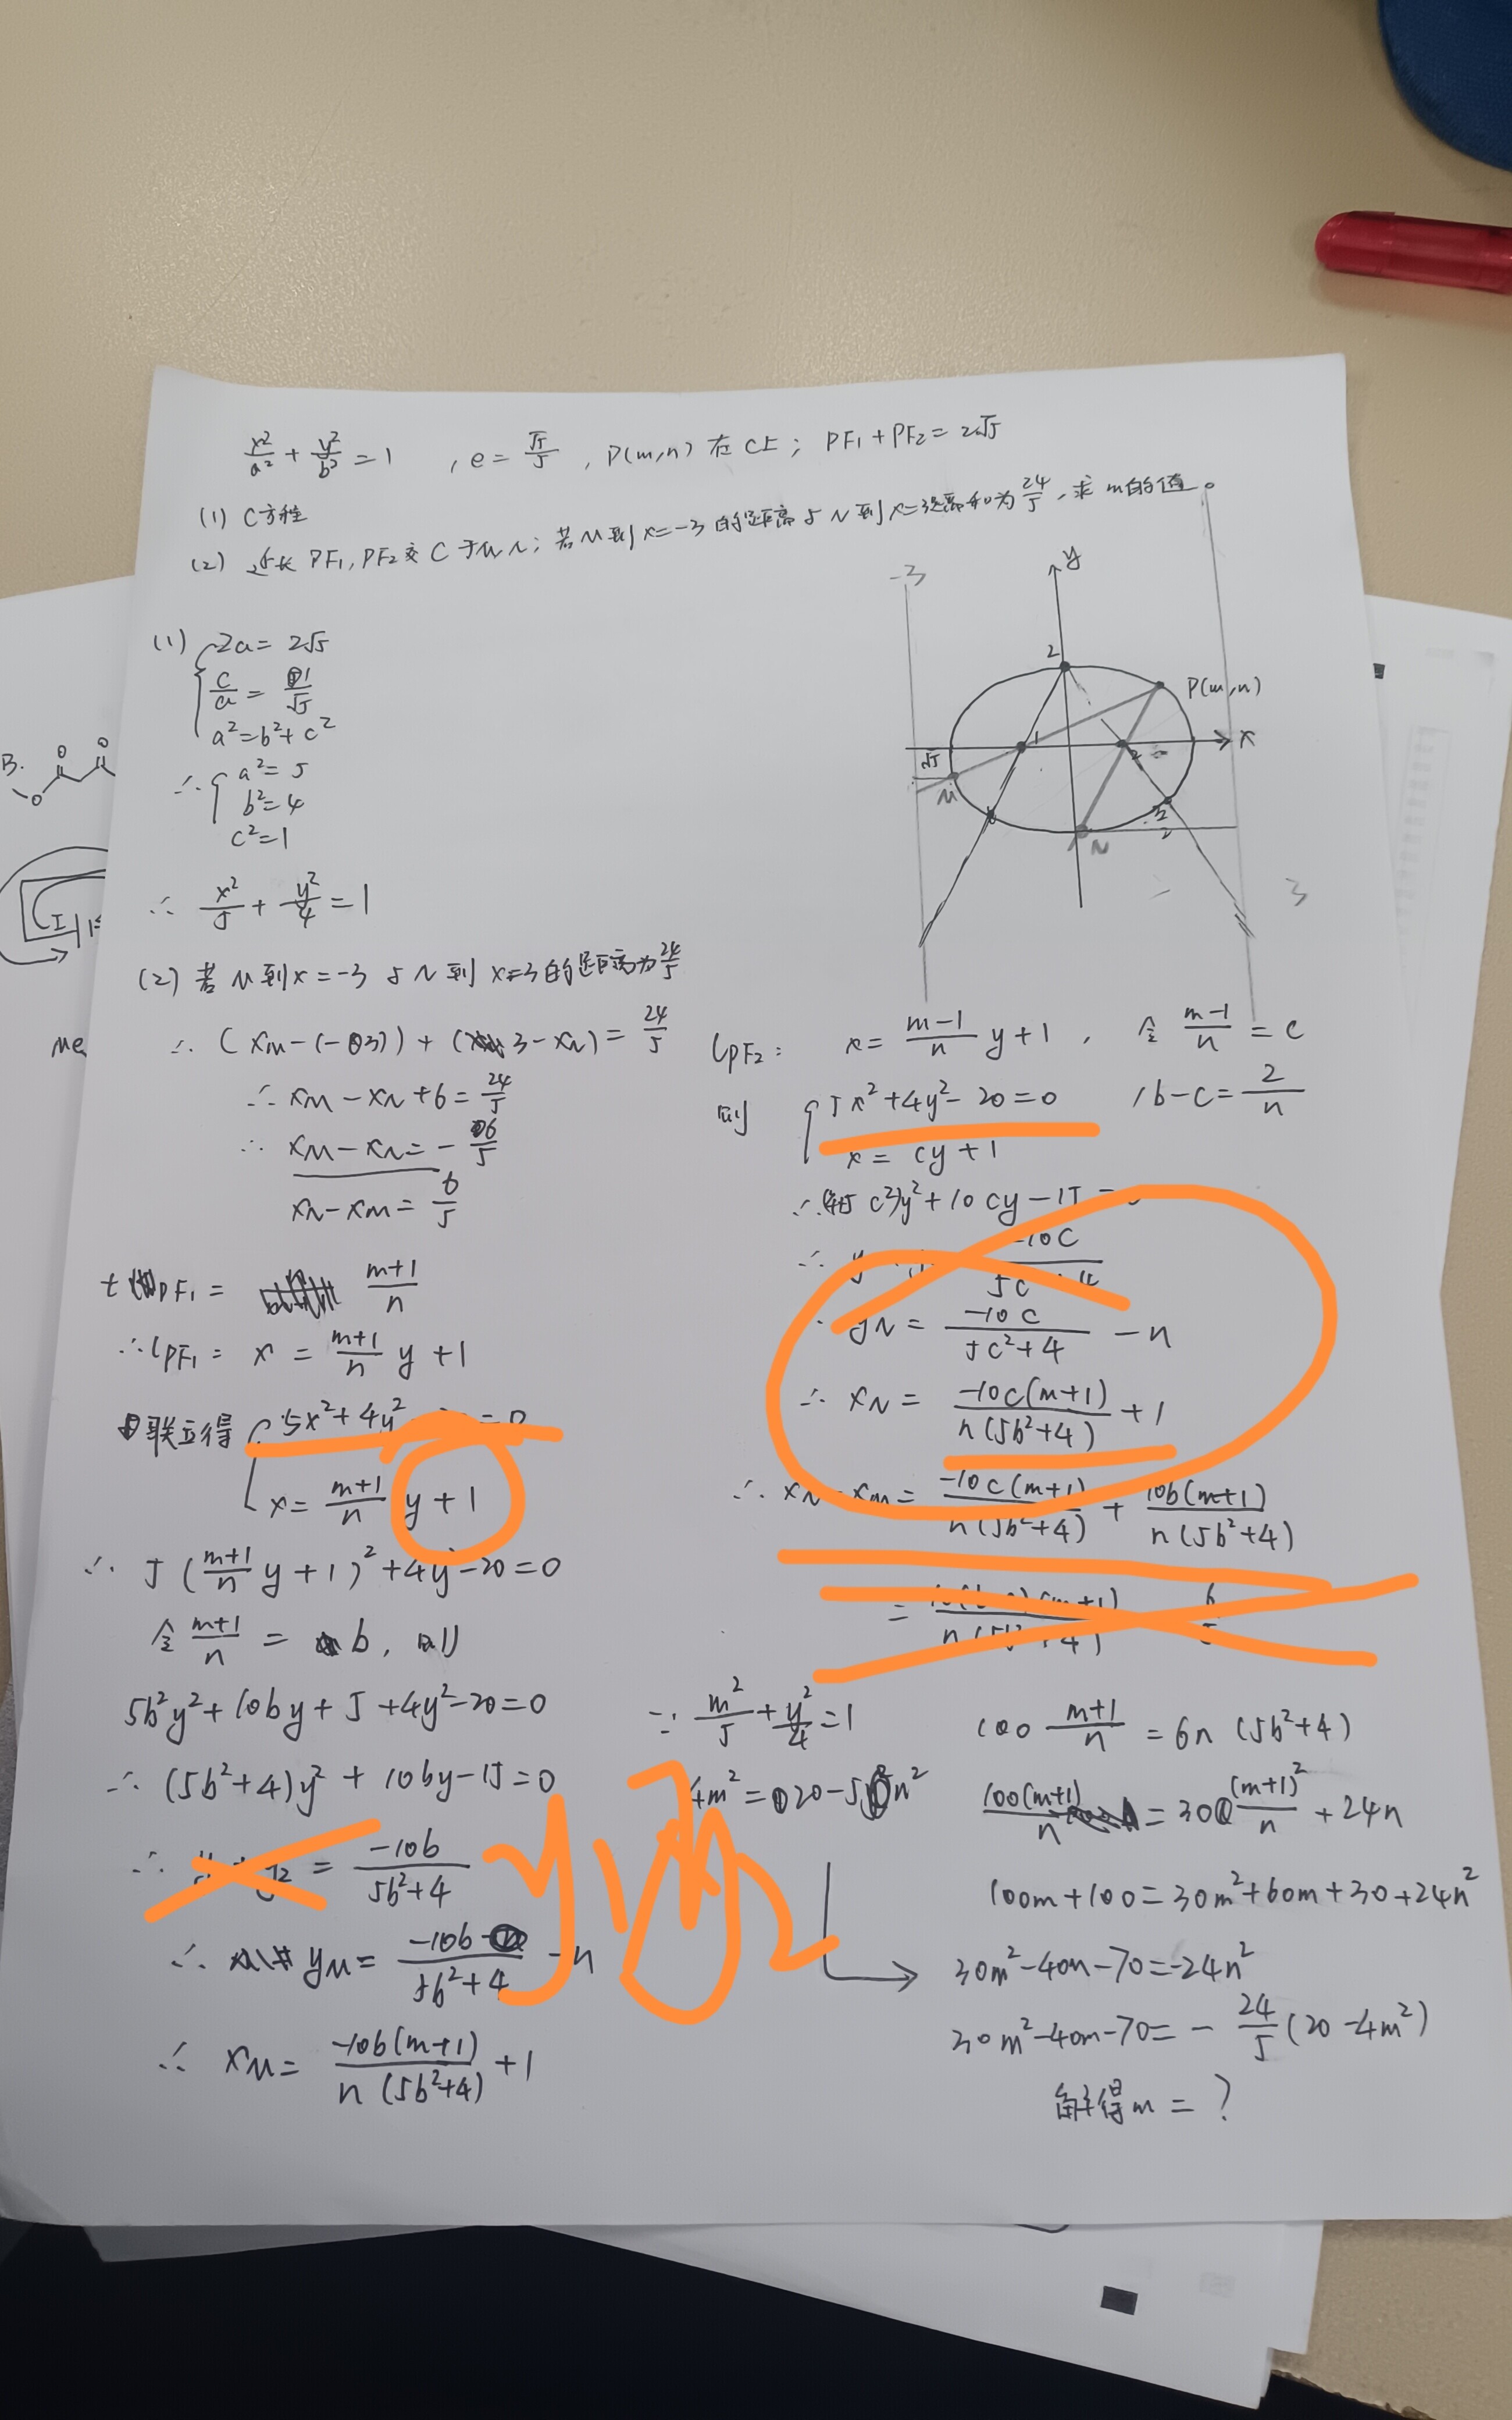 x²/a² + y²/b² = 1 , e = √5/5 , P(m,n) 在 C上 ; PF₁ + PF₂ = 2√5
(1) C方程
(2) 延长 PF₁, PF₂ 交 C 于 M, N; 若 M 到 x=-3 的距离与 N 到 x=3距离和为 24/5 , 求 m的值。
-3
y
2
P(m,n)
1
x
√5
M
N
3
(1) 2a = 2√5
c/a = 1/√5
a² = b² + c²
∴ a² = 5
b² = 4
c² = 1
∴ x²/5 + y²/4 = 1
(2) 若 M 到 x = -3 与 N 到 x=3 的距离为 24/5
∴ (xM - (-3)) + (3 - xN) = 24/5
∴ xM - xN + 6 = 24/5
∴ xM - xN = - 6/5
xN - xM = 6/5
PF₁ = m+1/n
∴ lPF₁ = x = m+1/n y + 1
联立得 5x² + 4y² = 0
x = m+1/n y + 1
∴ 5 (m+1/n y + 1)² + 4y² - 20 = 0
令 m+1/n = b, 则
5b²y² + 10by + 5 + 4y² - 20 = 0
∴ (5b²+4)y² + 10by - 15 = 0
∴ y₂ = -10b/5b²+4
y₁y₂
∴ yM = -10b/5b²+4 - n
∴ xM = -10b(m+1)/n(5b²+4) + 1
lPF₂: x = m-1/n y + 1 , 令 m-1/n = c
则 5x² + 4y² - 20 = 0 , b - c = 2/n
x = cy + 1
∴ c²)y² + 10cy - 15 =
∴ y -10c
yN = -10c/5c²+4 - n
∴ xN = -10c(m+1)/n(5b²+4) + 1
∴ xN - xM = -10c(m+1)/n(5b²+4) + 10b(m+1)/n(5b²+4)
= m+1)/n(5b²+4) 6/5
∵ m²/5 + y²/4 = 1
4m² = 20 - 5n²
100 m+1/n = 6n (5b²+4)
100(m+1)/n = 30 (m+1)²/n + 24n
100m + 100 = 30m² + 60m + 30 + 24n²
30m² - 40m - 70 = -24n²
30m² - 40m - 70 = - 24/5 (20 - 4m²)
解得 m = ?
B.
O
O
O
I
Me